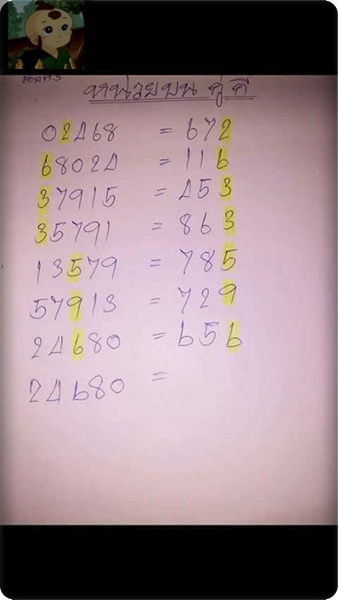 หน่วยบน คู่ คี่
02468 = 672
68024 = 116
37915 = 453
35791 = 863
13579 = 785
57913 = 729
24680 = 656
24680 =